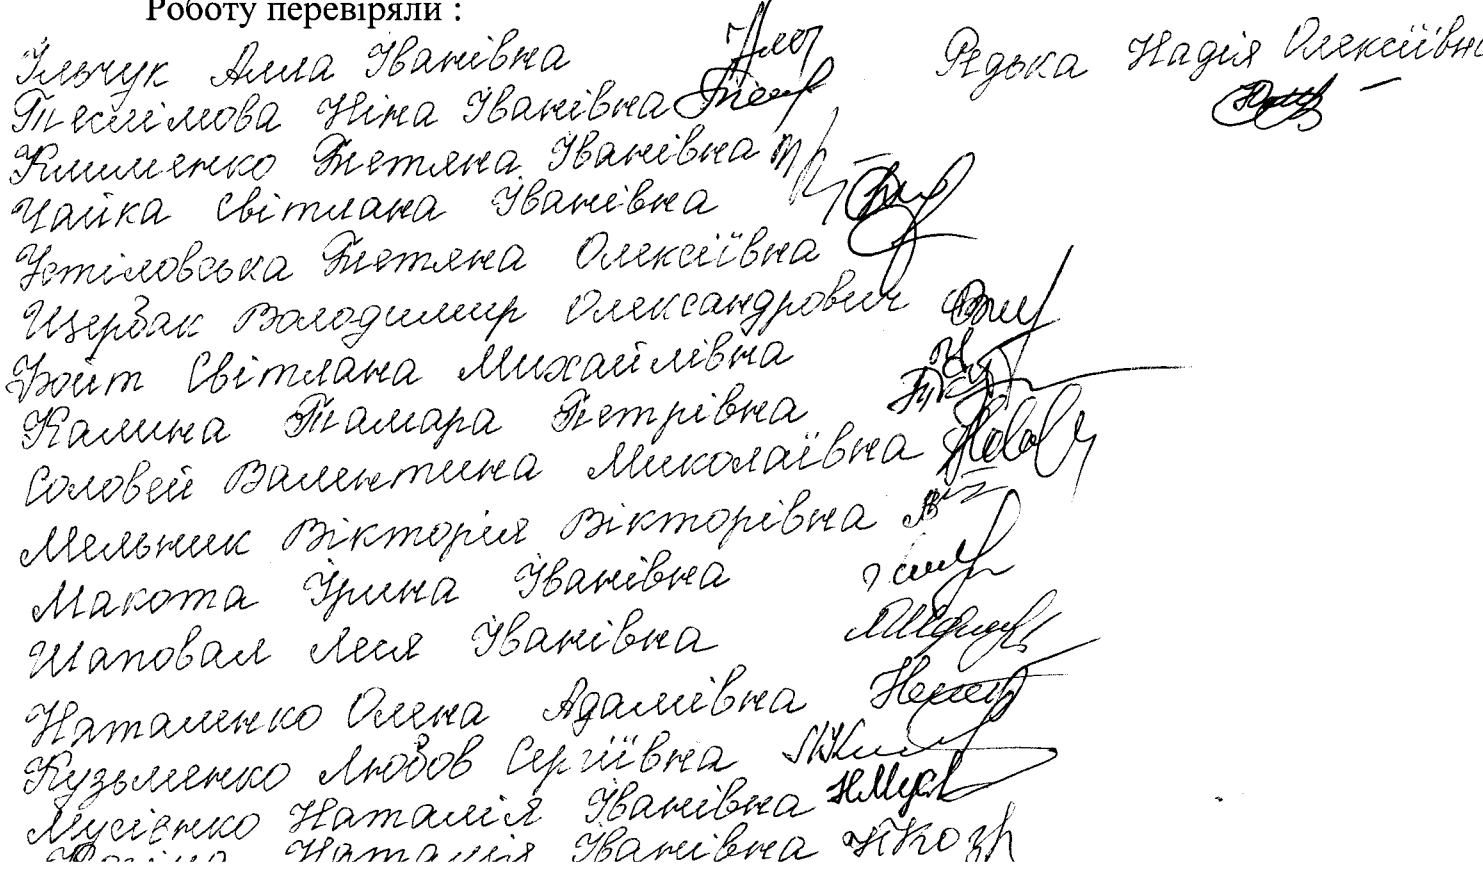 Роботу перевіряли :
Ільчук Алла Іванівна
Редька Надія Олексіївна
Теслімова Ніна Іванівна
Клименко Тетяна Іванівна
Чайка Світлана Іванівна
Устіловська Тетяна Олексіївна
Щербак Володимир Олександрович
Войт Світлана Михайлівна
Калина Тамара Петрівна
Соловей Валентина Миколаївна
Мельник Вікторія Вікторівна
Макота Ірина Іванівна
Шаповал Леся Іванівна
Наталенко Олена Адамівна
Кузьменко Любов Сергіївна
Мусієнко Наталія Іванівна
Наталія Іванівна